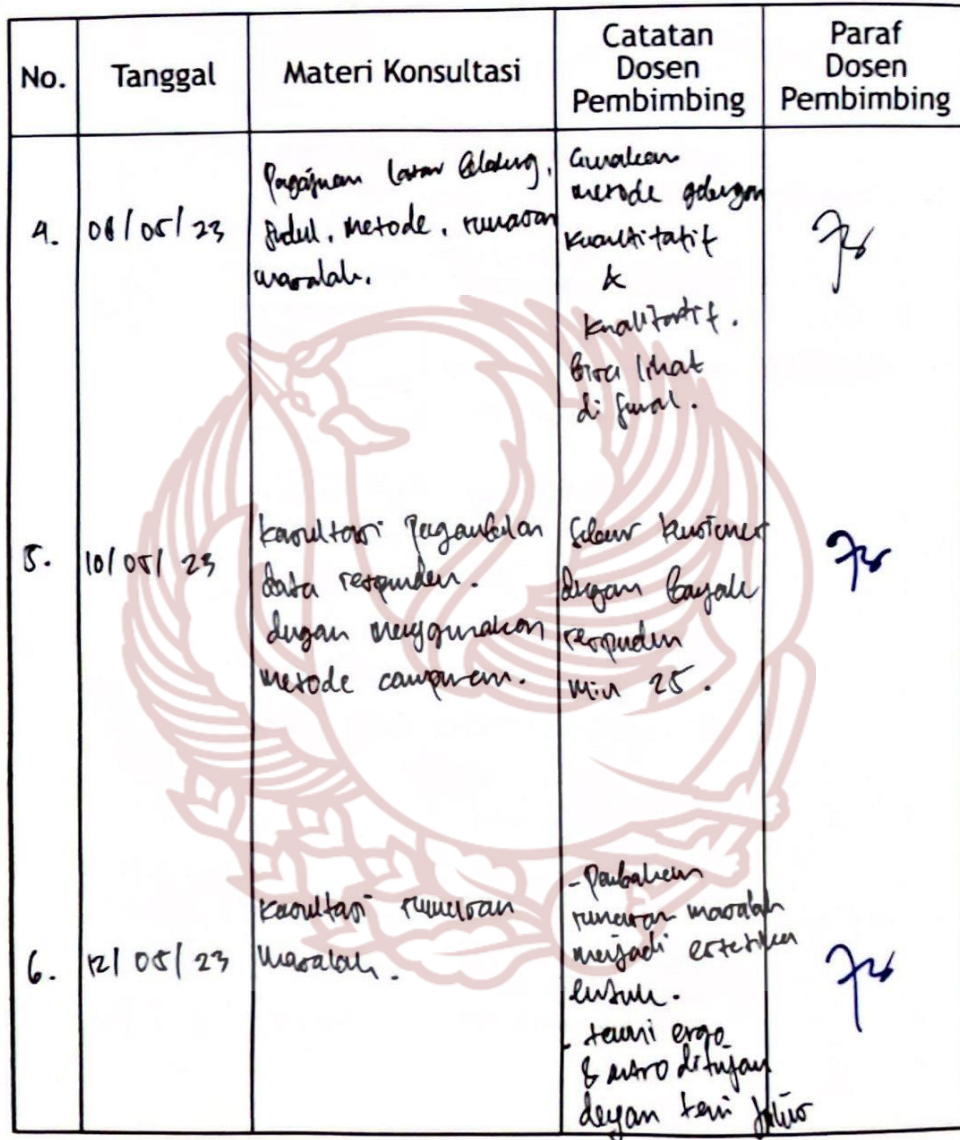 No. Tanggal Materi Konsultasi Catatan Dosen Pembimbing Paraf Dosen Pembimbing
4. 08/05/23
Pengajuan latar belakang,
judul, metode, rumusan
masalah.
Gunakan
metode gabungan
kuantitatif
&
kualitatif.
bisa lihat
di jurnal.
5. 10/05/23
Konsultasi pengambilan
data responden.
dengan menggunakan
metode campuran.
Sebar kuesioner
dengan banyak
responden
min 25.
6. 12/05/23
Konsultasi rumusan
masalah.
- Perubahan
rumusan masalah
menjadi estetika
bentuk.
- teori ergo
& antro
dengan teori